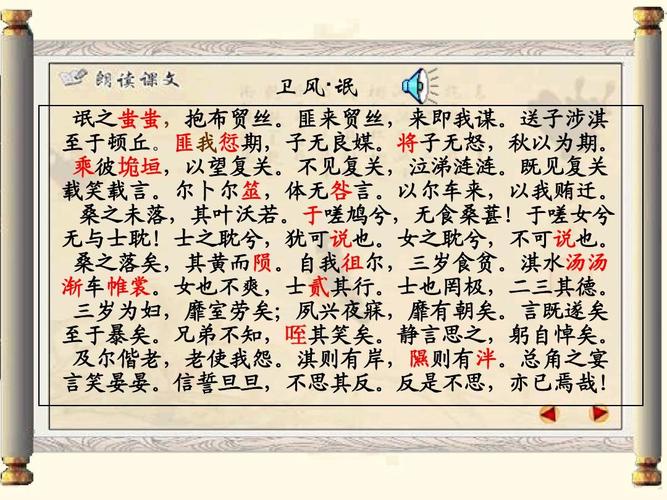 朗读课文
卫风·氓
氓之蚩蚩，抱布贸丝。匪来贸丝，来即我谋。送子涉淇
至于顿丘。匪我愆期，子无良媒。将子无怒，秋以为期。
乘彼垝垣，以望复关。不见复关，泣涕涟涟。既见复关
载笑载言。尔卜尔筮，体无咎言。以尔车来，以我贿迁。
桑之未落，其叶沃若。于嗟鸠兮，无食桑葚！于嗟女兮
无与士耽！士之耽兮，犹可说也。女之耽兮，不可说也。
桑之落矣，其黄而陨。自我徂尔，三岁食贫。淇水汤汤
渐车帷裳。女也不爽，士貳其行。士也罔极，二三其德。
三岁为妇，靡室劳矣；夙兴夜寐，靡有朝矣。言既遂矣
至于暴矣。兄弟不知，咥其笑矣。静言思之，躬自悼矣。
及尔偕老，老使我怨。淇则有岸，隰则有泮。总角之宴
言笑晏晏。信誓旦旦，不思其反。反是不思，亦已焉哉！